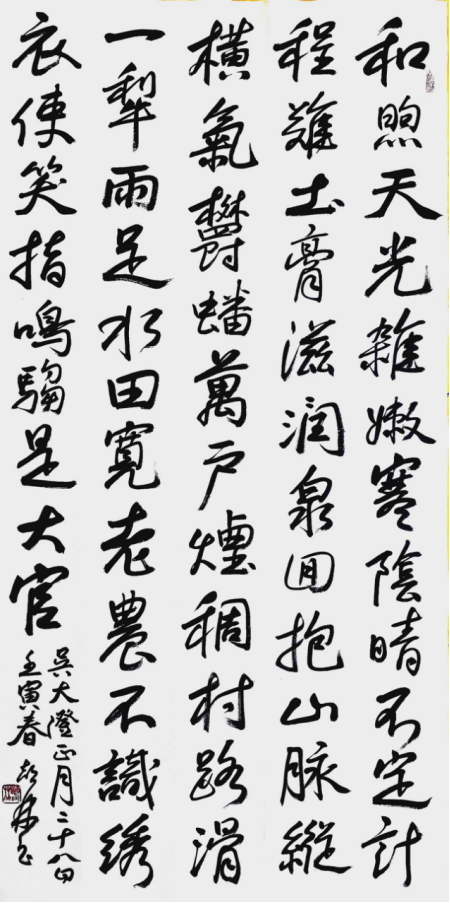 和煦天光雜嫩寒陰晴不定計
程難土膏滋润泉囬抱山脉縱
橫氣欝蟠萬戶煙稠村路滑
一犂雨足水田寬老農不識綉
衣使笑指鳴騶是大官
吴大澄正月二十八日
壬寅春